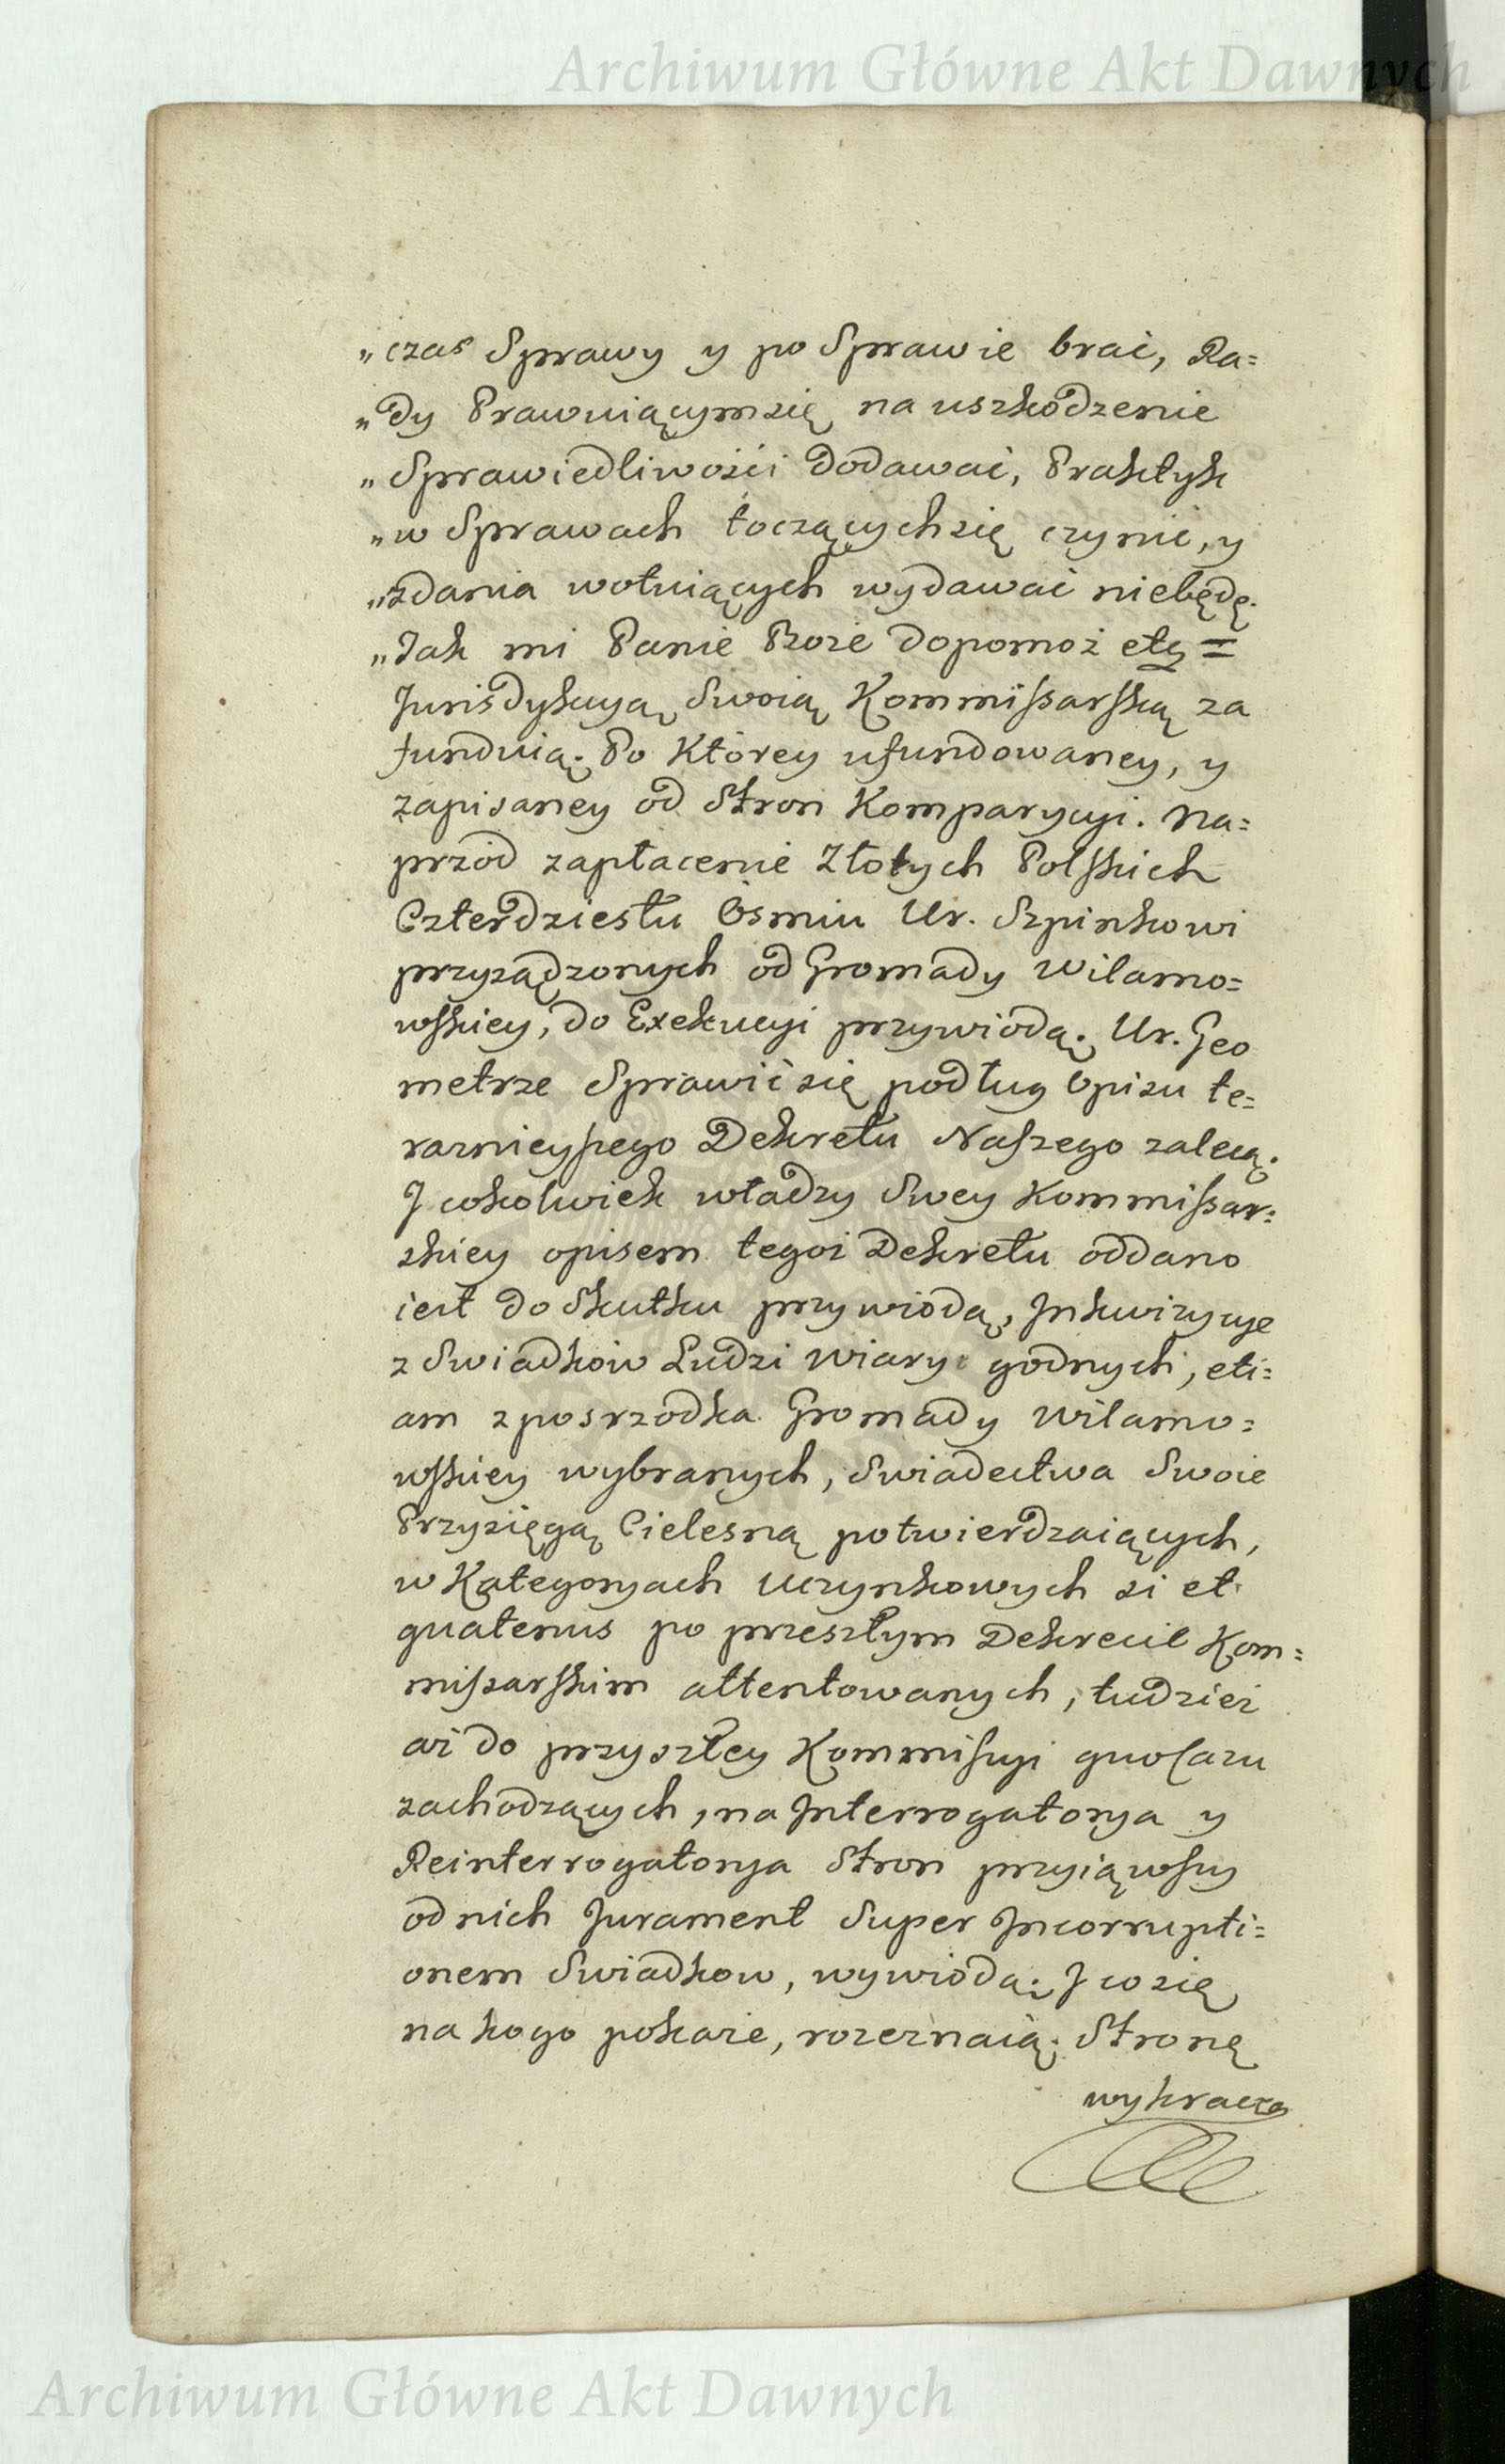 Archiwum Główne Akt Dawnych
„czas Sprawy y po Sprawie brać, Ra=
„dy Prawuiącym się na uszkodzenie
„Sprawiedliwości dodawać, Praktyk
„w Sprawach toczących się czynić, y
„zdania wotuiących wydawać niebędę.
„Tak mi Panie Boże dopomoż etc =
Jurisdykcyą Swoią Kommissarską za
funduią. Po Którey ufundowaney, y
zapisaney od Stron Komparycyi. Na=
przód zapłacenie Złotych Polskich
Czterdziestu Ośmiu Ur. Szpinkowi
przysądzonych od Gromady Wilamo=
wskiey, do Exekucyi przywiodą. Ur. Geo
metrze Sprawić się podług Opisu te=
raznieyszego Dekretu Naszego zalecą.
J cokolwiek władzy Swey Kommissar=
skiey opisem tegoż Dekretu oddano
iest do Skutku przywiodą, Jnkwizycye
z Swiadków Ludzi wiary godnych, eti=
am zposrzodka Gromady Wilamo=
wskiey wybranych, Swiadectwa Swoie
Przysięgą Cielesną potwierdzaiących,
w Kategoryach Uczynkowych si et
quatenus po przeszłym Dekrecie Kom=
missarskim attentowanych, tudzież
aż do przyszłey Kommissyi quo casu
zachodzących, na Jnterrogatorya y
Reinterrogatorya Stron przyiąwszy
od nich Jurament Super Jncorrupti=
onem Swiadkow, wywiodą; J co się
na kogo pokaże, rozeznaią; Stronę
wykracza
Archiwum Główne Akt Dawnych